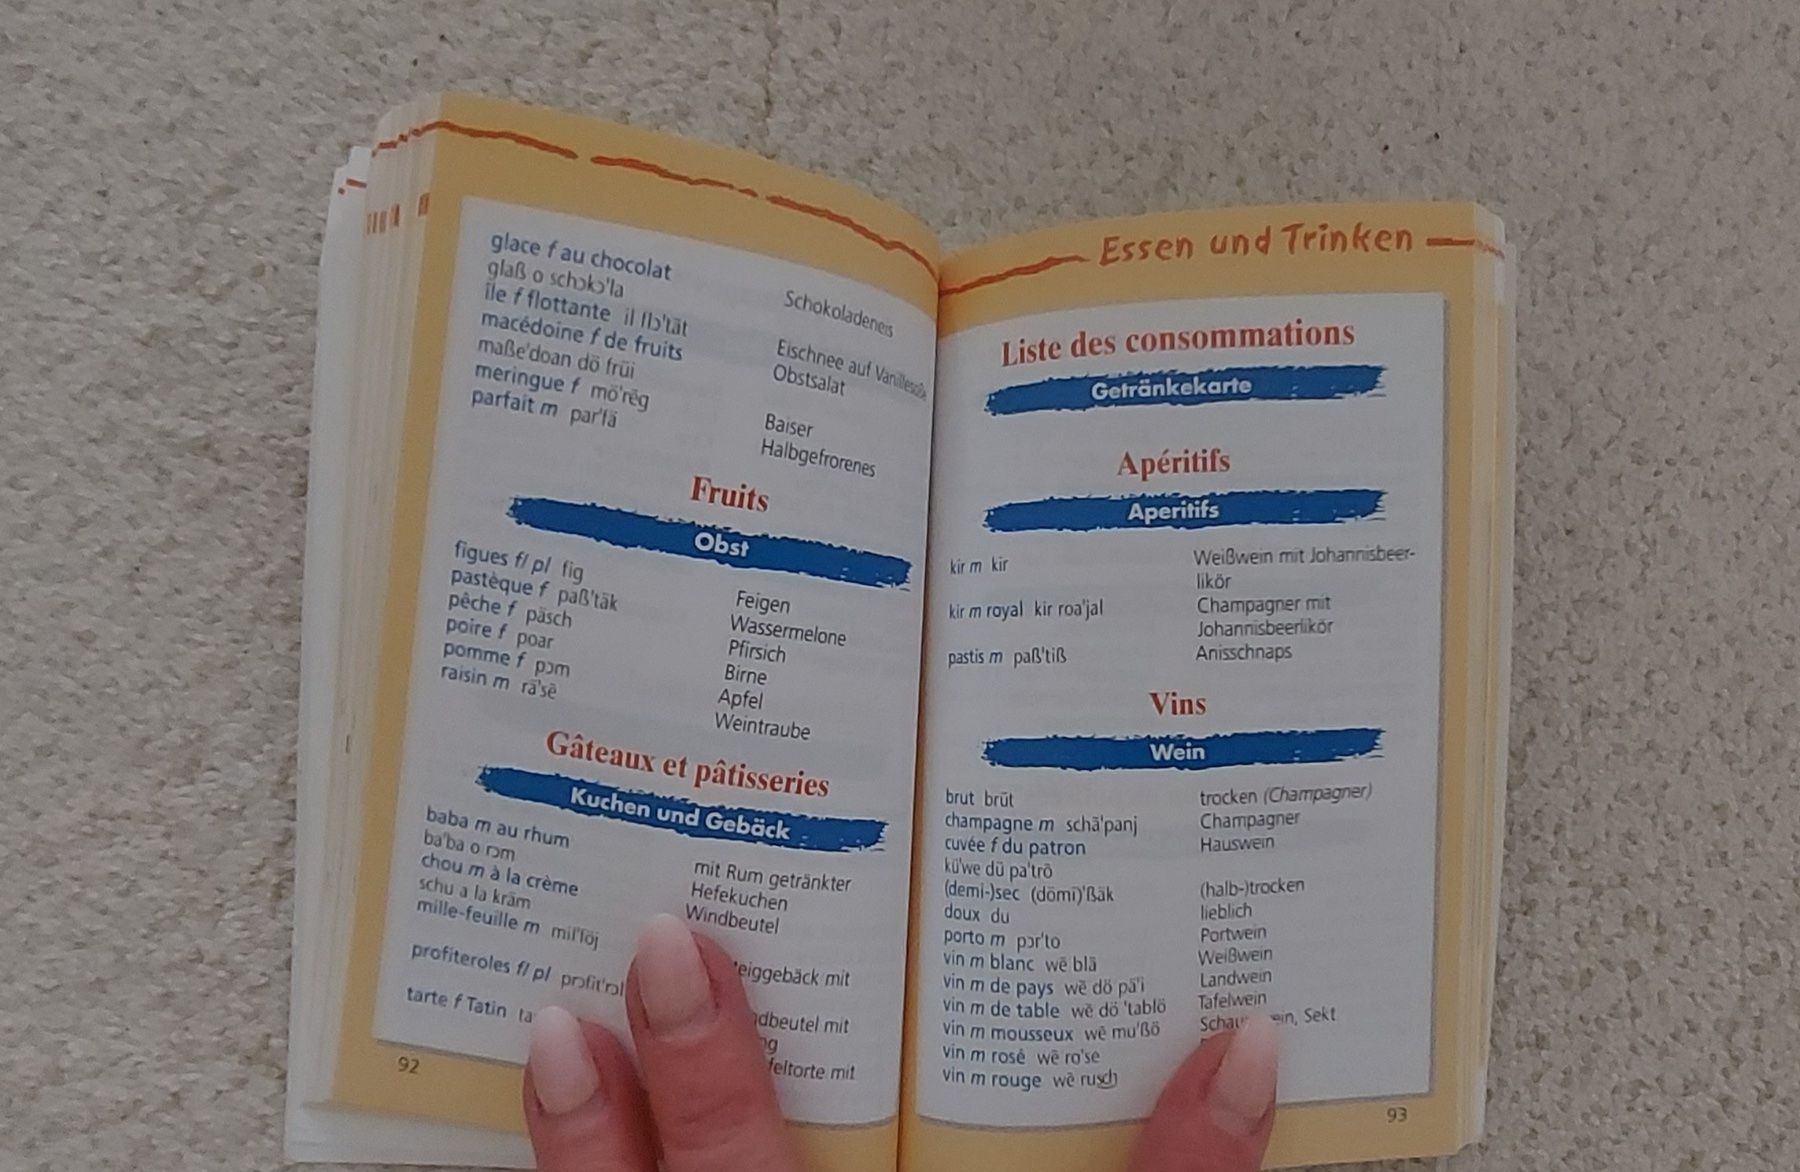 glace f au chocolat
glaß o schɔkɔ'la
Schokoladeneis
île f flottante il flɔ'tãt
Eischnee auf Vanillesoße
macédoine f de fruits
Obstsalat
maße'doan dö früi
meringue f mö'rẽg
Baiser
parfait m par'fä
Halbgefrorenes
Fruits
Obst
figues f/pl fig
Feigen
pastèque f paß'täk
Wassermelone
pêche f päsch
Pfirsich
poire f poar
Birne
pomme f pɔm
Apfel
raisin m rä'sẽ
Weintraube
Gâteaux et pâtisseries
Kuchen und Gebäck
baba m au rhum
mit Rum getränkter
ba'ba o rɔm
Hefekuchen
chou m à la crème
Windbeutel
schu a la kräm
mille-feuille m mil'föj
eiggebäck mit
profiteroles f/pl prɔfit'rɔl
ndbeutel mit
tarte f Tatin ta
feltorte mit
92
Essen und Trinken
Liste des consommations
Getränkekarte
Apéritifs
Aperitifs
kir m kir
Weißwein mit Johannisbeer-
likör
kir m royal kir roa'jal
Champagner mit
Johannisbeerlikör
pastis m paß'tiß
Anisschnaps
Vins
Wein
brut brüt
trocken (Champagner)
champagne m schã'panj
Champagner
cuvée f du patron
Hauswein
kü'we dü pa'trõ
(demi-)sec (dömi)'ßäk
(halb-)trocken
doux du
lieblich
porto m pɔr'to
Portwein
vin m blanc wẽ blã
Weißwein
vin m de pays wẽ dö pä'i
Landwein
vin m de table wẽ dö 'tablö
Tafelwein
vin m mousseux wẽ mu'ßö
Schaumwein, Sekt
vin m rosé wẽ ro'se
vin m rouge wẽ rusch
93